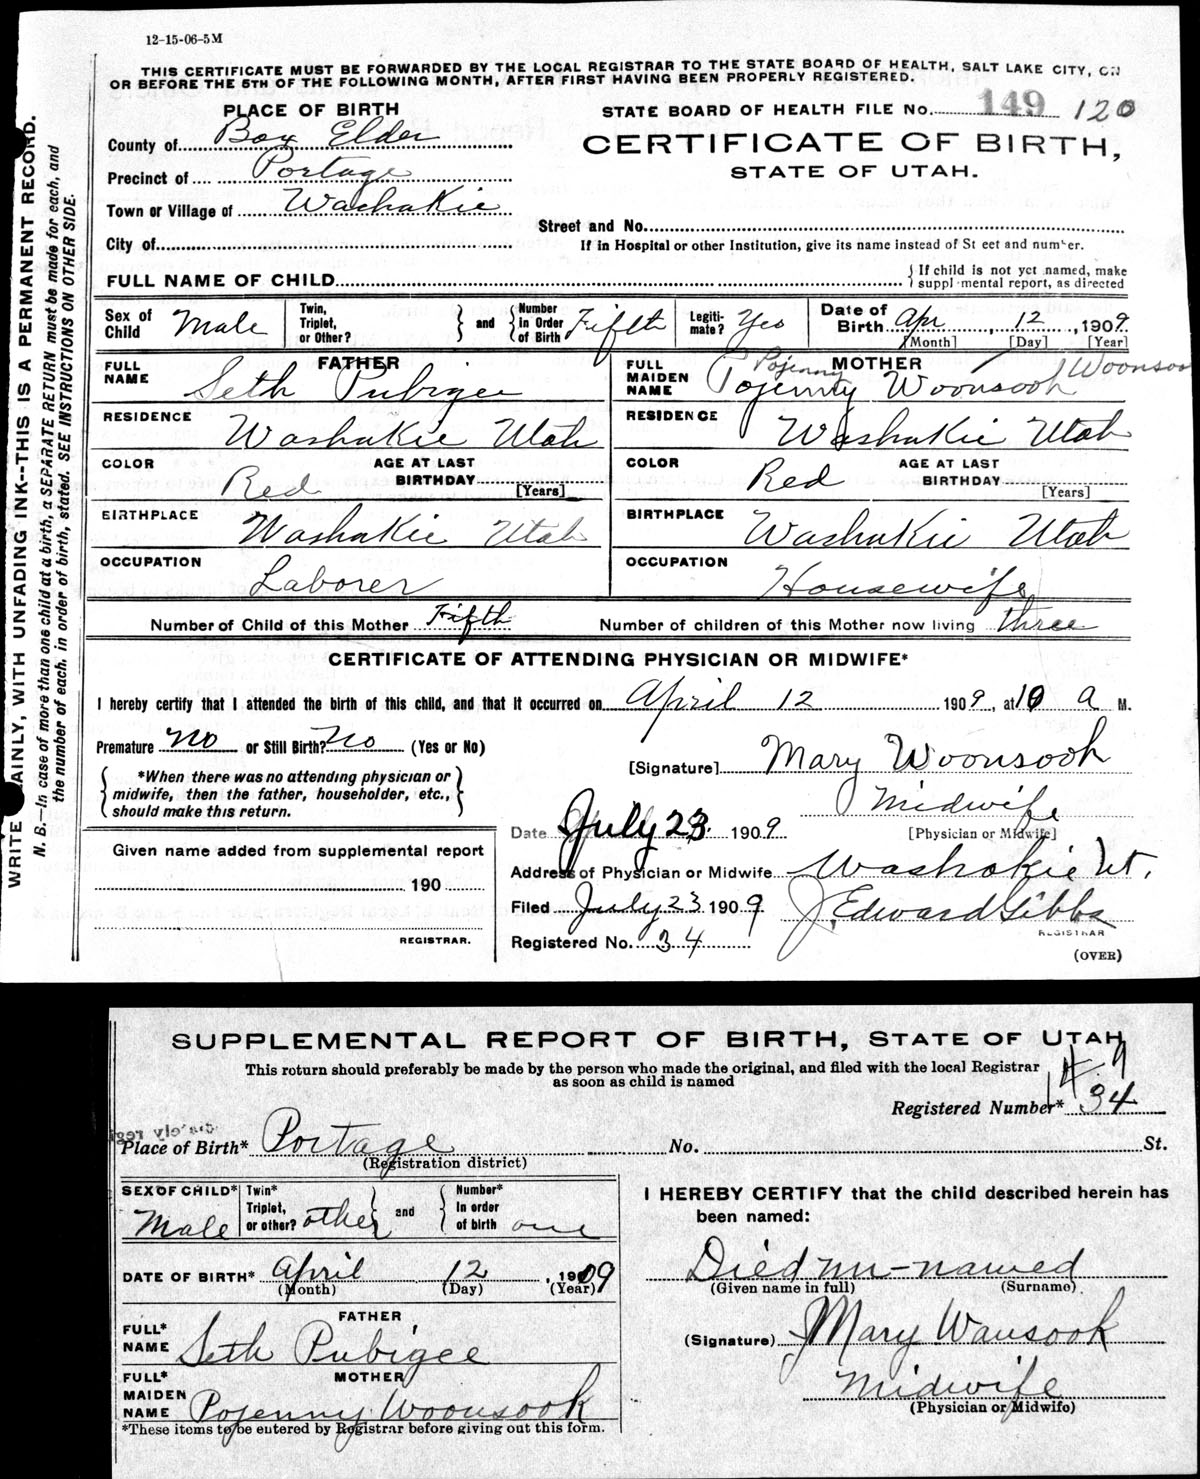 12-15-06-5M
THIS CERTIFICATE MUST BE FORWARDED BY THE LOCAL REGISTRAR TO THE STATE BOARD OF HEALTH, SALT LAKE CITY, ON
OR BEFORE THE 5TH OF THE FOLLOWING MONTH, AFTER FIRST HAVING BEEN PROPERLY REGISTERED.
PLACE OF BIRTH
STATE BOARD OF HEALTH FILE No. 149 120
County of Box Elder
CERTIFICATE OF BIRTH,
Precinct of Portage
STATE OF UTAH.
Town or Village of Washakie
Street and No.
City of
If in Hospital or other Institution, give its name instead of St eet and number.
FULL NAME OF CHILD
If child is not yet named, make
supplemental report, as directed
Sex of Child Male
Twin, Triplet, or Other?
and Number in Order of Birth Fifth
Legiti-mate? Yes
Date of Birth Apr, 12, 1909
[Month] [Day] [Year]
FATHER
FULL NAME Seth Pubigee
RESIDENCE Washakie Utah
COLOR Red
AGE AT LAST BIRTHDAY [Years]
BIRTHPLACE Washakie Utah
OCCUPATION Laborer
MOTHER
Pojenny Woonsoo
FULL MAIDEN NAME Pojenny Woonsook
RESIDENCE Washakie Utah
COLOR Red
AGE AT LAST BIRTHDAY [Years]
BIRTHPLACE Washakie Utah
OCCUPATION Housewife
Number of Child of this Mother Fifth Number of children of this Mother now living three
CERTIFICATE OF ATTENDING PHYSICIAN OR MIDWIFE*
I hereby certify that I attended the birth of this child, and that it occurred on April 12 1909, at 10 a M.
Premature No or Still Birth? No (Yes or No)
[Signature] Mary Woonsook
*When there was no attending physician or
midwife, then the father, householder, etc.,
should make this return.
Midwife
[Physician or Midwife]
Date July 23. 1909
Given name added from supplemental report
190
REGISTRAR.
Address of Physician or Midwife Washakie Ut.
Filed July 23 1909 J. Edward Gibbs
REGISTRAR
Registered No. 34
(OVER)
WRITE PLAINLY, WITH UNFADING INK--THIS IS A PERMANENT RECORD.
N. B.—In case of more than one child at a birth, a SEPARATE RETURN must be made for each, and
the number of each, in order of birth, stated. SEE INSTRUCTIONS ON OTHER SIDE.
SUPPLEMENTAL REPORT OF BIRTH, STATE OF UTAH
This return should preferably be made by the person who made the original, and filed with the local Registrar
as soon as child is named
Registered Number* 34
Place of Birth* Portage No. St.
(Registration district)
SEX OF CHILD* Male
Twin* Triplet, or other? other
and Number* In order of birth one
DATE OF BIRTH* April 12, 1909
(Month) (Day) (Year)
FATHER
FULL* NAME Seth Pubigee
MOTHER
FULL* MAIDEN NAME Pojenny Woonsook
*These items to be entered by Registrar before giving out this form.
I HEREBY CERTIFY that the child described herein has
been named:
Died un-named
(Given name in full) (Surname)
(Signature) Mary Wansook
Midwife
(Physician or Midwife)